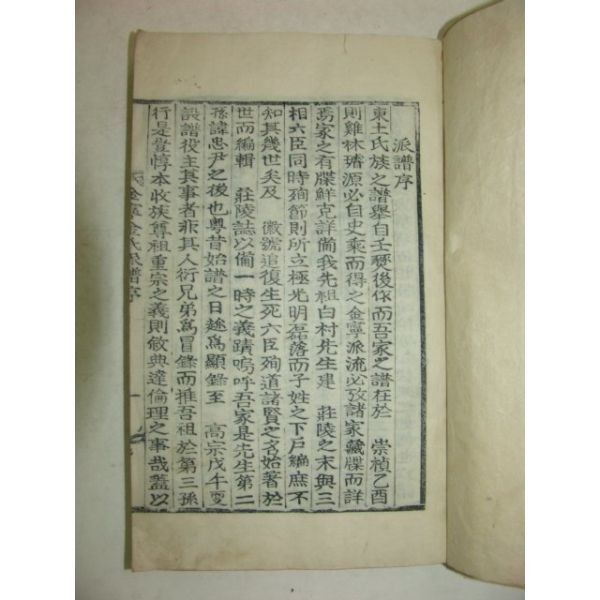 派譜序
東土氏族之譜擧自壬燹後作而吾家之譜在於 崇禎乙酉
則雞林璿源必自史乘而得之金寧派流必攷諸家藏牒而詳
焉家之有牒鮮克詳備我先祖白村先生建 莊陵之末與三
相六臣同時殉節則所立極光明磊落而子姓之下戶編庶不
知其幾世矣及 徽號追復生死六臣殉道諸賢之名始著於
世而編輯 莊陵誌以備一時之義蹟嗚呼吾家是先生第二
孫諱忠尹之後也粤昔始譜之日 爲顯錄至 高宗戊午更
設譜役主其事者非其人衍兄弟爲冒錄而推吾祖於第三孫
行是豈惇本收族尊祖重宗之義則敘典達倫理之事哉蓋以
金寧金氏派譜序